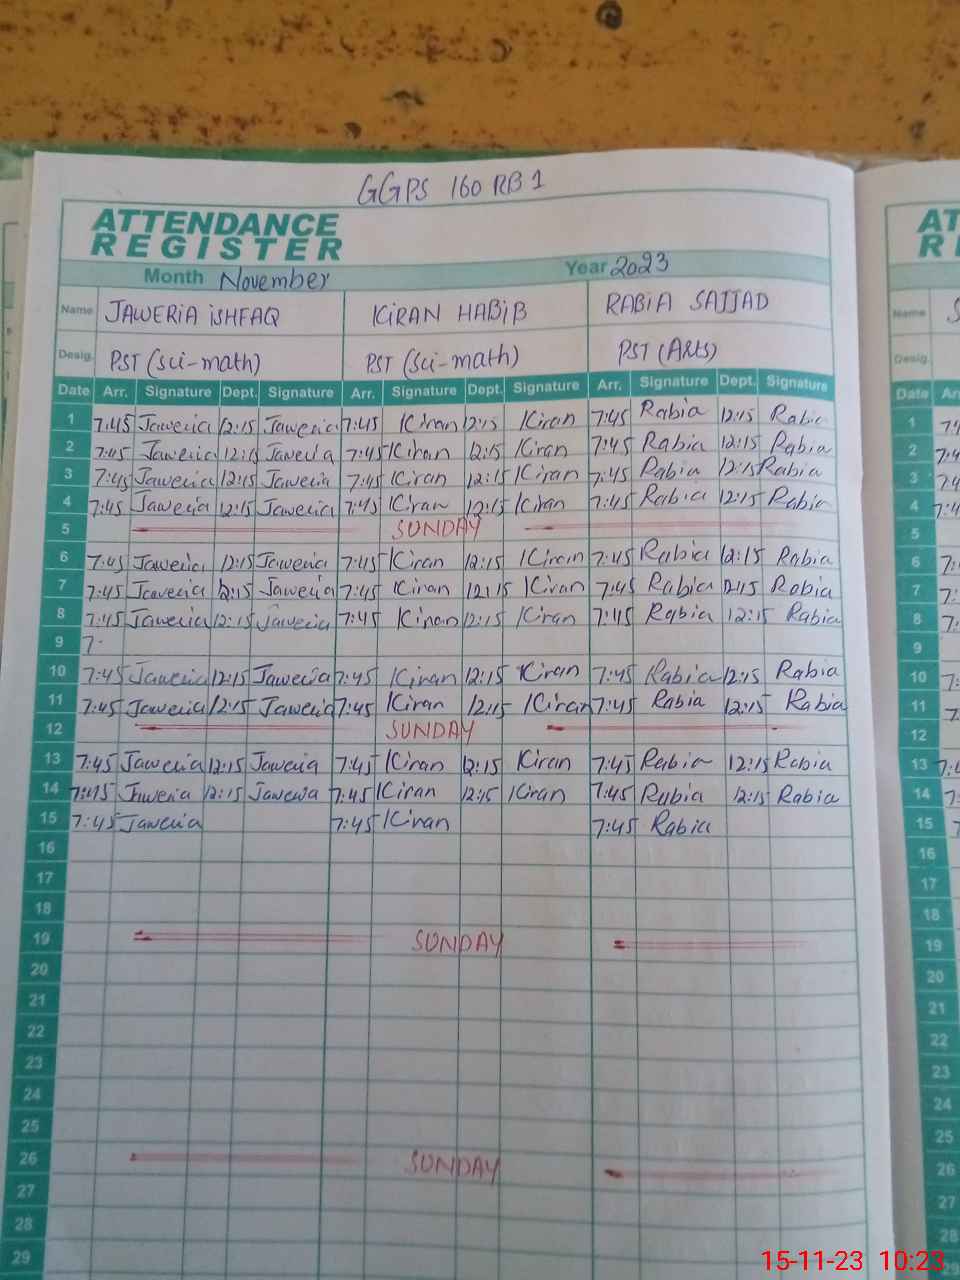 GGPS 160 RB 1
ATTENDANCE
REGISTER
Month November Year 2023
Name JAWERIA ISHFAQ KIRAN HABIB RABIA SAJJAD
Desig. PST (Sci-math) PST (Sci-math) PST (Arts)
Date Arr. Signature Dept. Signature Arr. Signature Dept. Signature Arr. Signature Dept. Signature
1 7:45 Jaweria 12:15 Jaweria 7:45 Kiran 12:15 Kiran 7:45 Rabia 12:15 Rabia
2 7:45 Jaweria 12:15 Jaweria 7:45 Kiran 12:15 Kiran 7:45 Rabia 12:15 Rabia
3 7:45 Jaweria 12:15 Jaweria 7:45 Kiran 12:15 Kiran 7:45 Rabia 12:15 Rabia
4 7:45 Jaweria 12:15 Jaweria 7:45 Kiran 12:15 Kiran 7:45 Rabia 12:15 Rabia
5 SUNDAY
6 7:45 Jaweria 12:15 Jaweria 7:45 Kiran 12:15 Kiran 7:45 Rabia 12:15 Rabia
7 7:45 Jaweria 12:15 Jaweria 7:45 Kiran 12:15 Kiran 7:45 Rabia 12:15 Rabia
8 7:45 Jaweria 12:15 Jaweria 7:45 Kiran 12:15 Kiran 7:45 Rabia 12:15 Rabia
9 7-
10 7:45 Jaweria 12:15 Jaweria 7:45 Kiran 12:15 Kiran 7:45 Rabia 12:15 Rabia
11 7:45 Jaweria 12:15 Jaweria 7:45 Kiran 12:15 Kiran 7:45 Rabia 12:15 Rabia
12 SUNDAY
13 7:45 Jaweria 12:15 Jaweria 7:45 Kiran 12:15 Kiran 7:45 Rabia 12:15 Rabia
14 7:45 Jaweria 12:15 Jaweria 7:45 Kiran 12:15 Kiran 7:45 Rabia 12:15 Rabia
15 7:45 Jaweria 7:45 Kiran 7:45 Rabia
16
17
18
19 SUNDAY
20
21
22
23
24
25
26 SUNDAY
27
28
29
Name
Desig.
Date
1
2
3
4
5
6
7
8
9
10
11
12
13
14
15
16
17
18
19
20
21
22
23
24
25
26
27
28
15-11-23 10:23